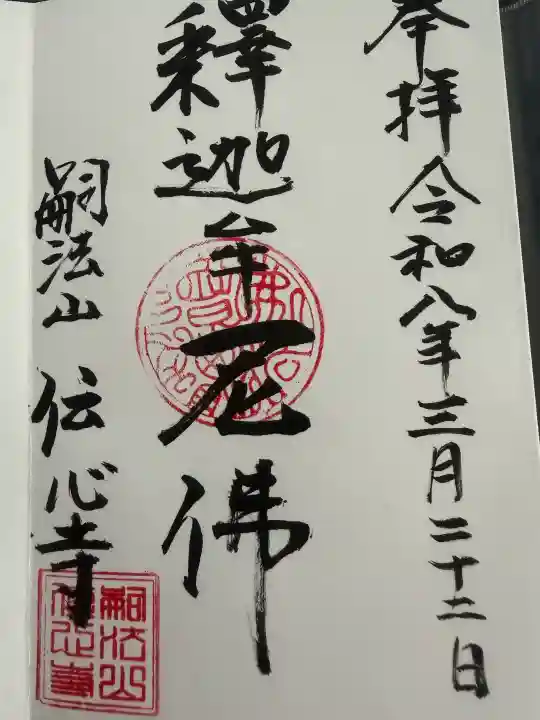 奉拝 令和八年三月二十二日
釋迦牟尼佛
嗣法山 伝心寺
嗣法山
伝心寺